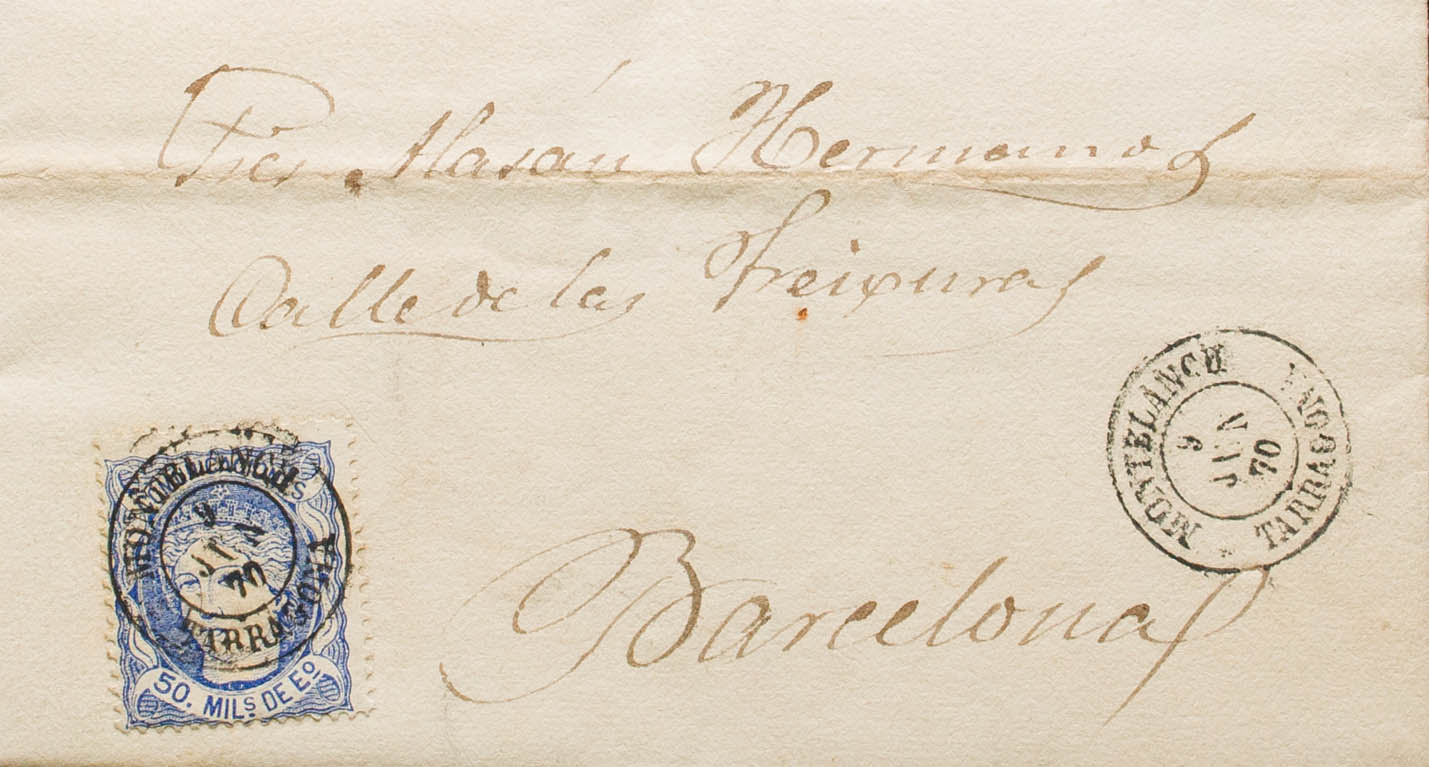 Hermanos
Calle de las Freixuras
Barcelona
MONTBLANCH
9
JUN
70
TARRAGONA
COMUNICACIONES
MONTBLANCH
9
JUN
70
TARRAGONA
50. MILS. DE Eº